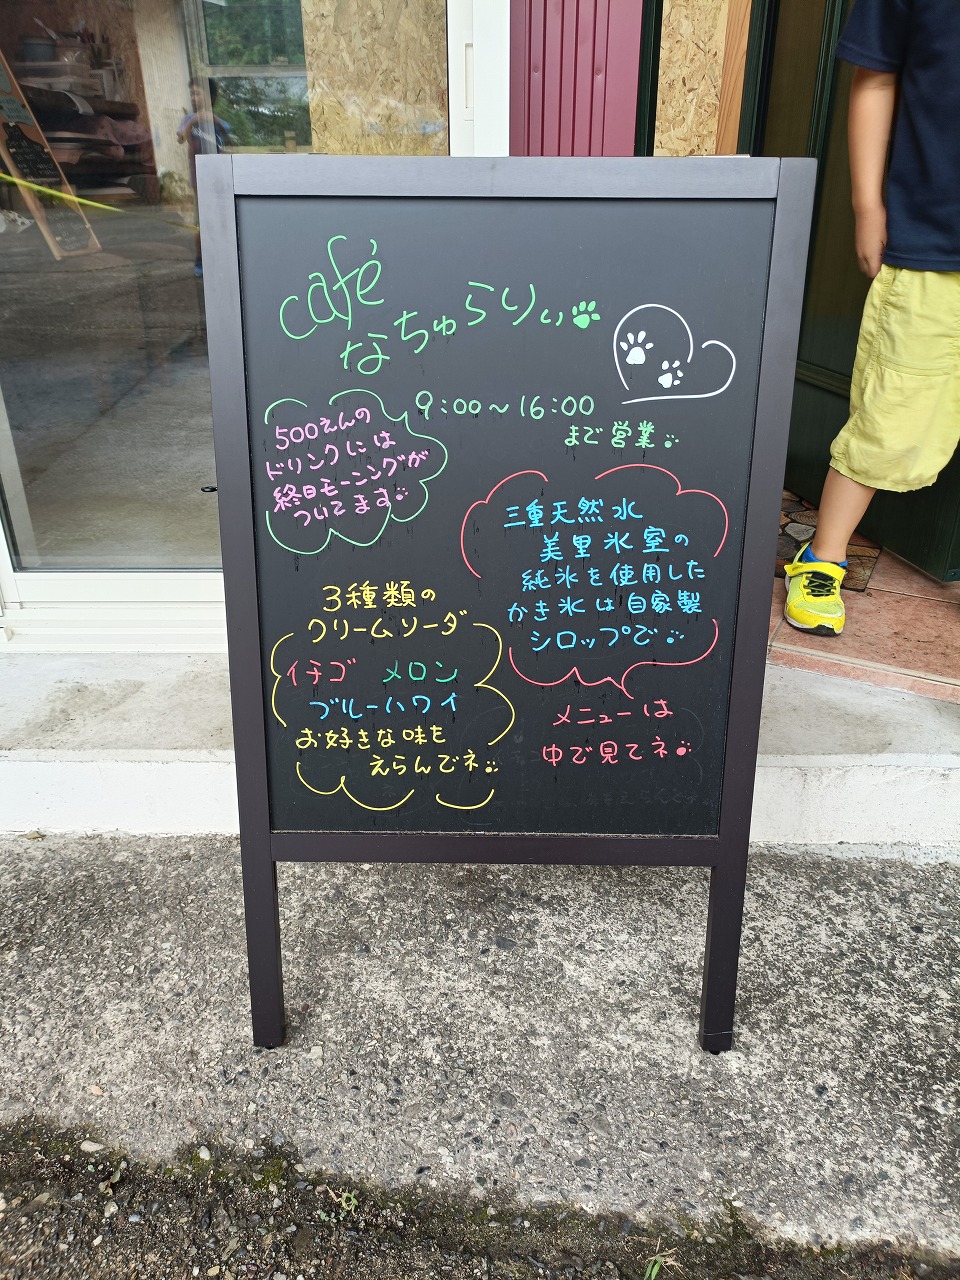 café
なちゅらりぃ
9:00〜16:00
まで営業
500えんの
ドリンクには
終日モーニングが
ついてます
三重天然水
美里氷室の
純氷を使用した
かき氷は自家製
シロップで
3種類の
クリームソーダ
イチゴ メロン
ブルーハワイ
お好きな味を
えらんでネ
メニューは
中で見てネ